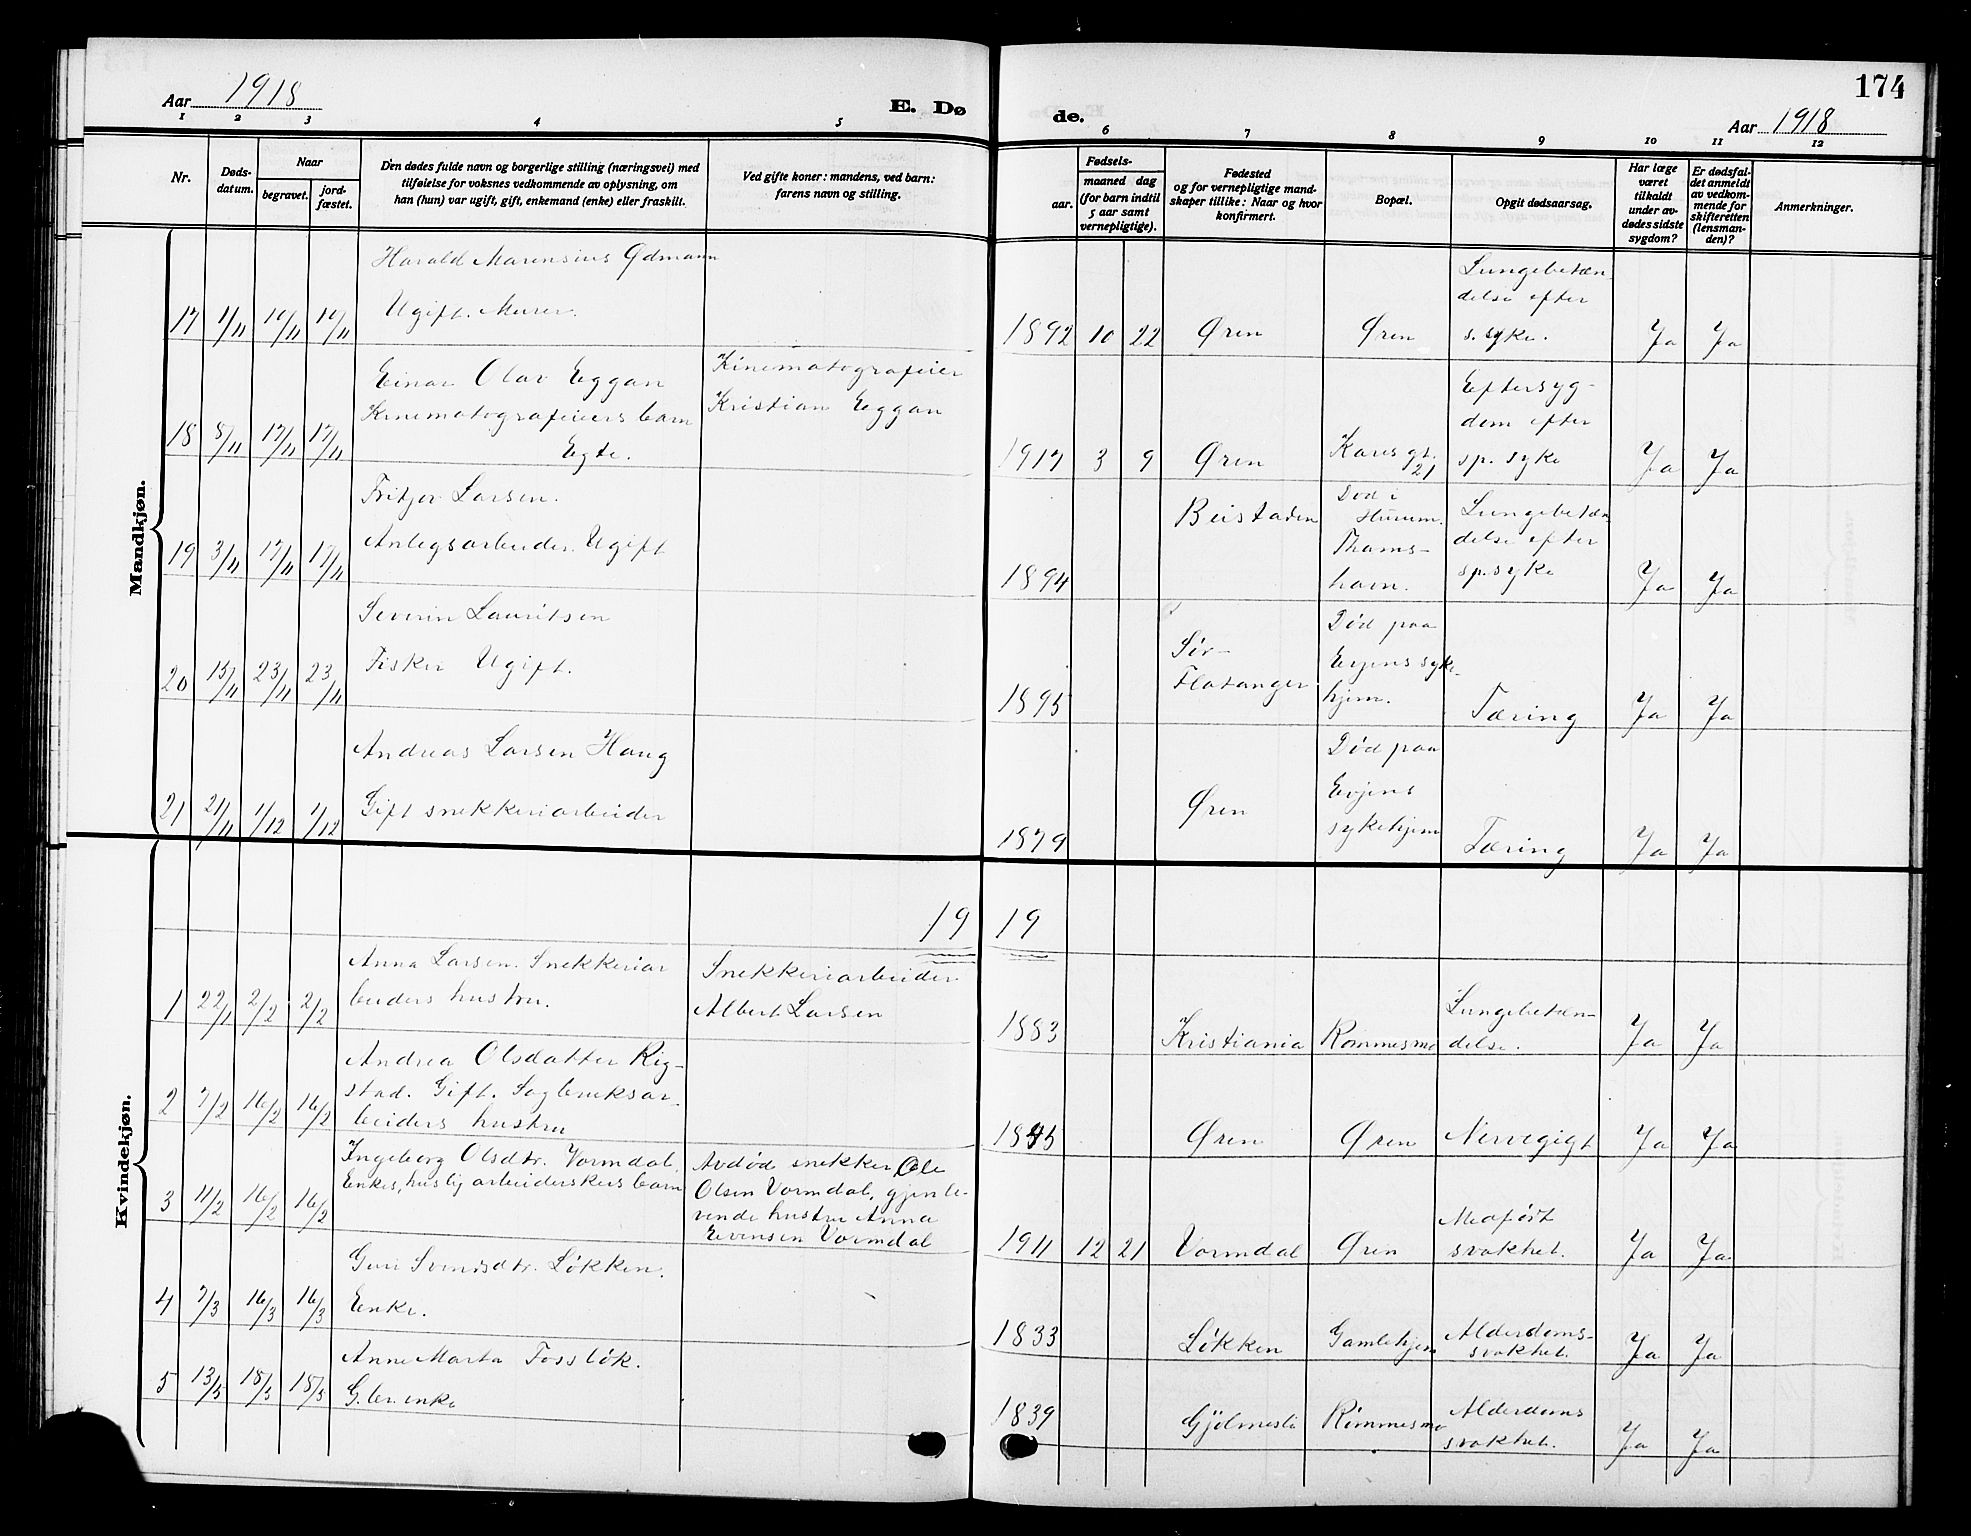 174
Aar 1918 E. Døde. Aar 1918
1 2 3 4 5 6 7 8 9 10 11 12
Nr.
Dødsdatum.
Naar
begravet.
jordfæstet.
Den dødes fulde navn og borgerlige stilling (næringsvei) med
tilføielse for voksnes vedkommende av oplysning, om
han (hun) var ugift, gift, enkemand (enke) eller fraskilt.
Ved gifte koner: mandens, ved barn:
farens navn og stilling.
Fødsels-
aar.
maaned dag
(for barn indtil
5 aar samt
vernepligtige).
Fødested
og for vernepligtige mand-
skaper tillike: Naar og hvor
konfirmert.
Bopæl.
Opgit dødsaarsag.
Har læge
været
tilkaldt
under av-
dødes sidste
sygdom?
Er dødsfal-
det anmeldt
av vedkom-
mende for
skifteretten
(lensman-
den)?
Anmerkninger.
Mandkjøn.
Harald Marensius Ødmann
Ugift. Murer.
17 1/11 10/11 10/11
1892 10 22 Øren Øren
Lungebetæn
delse efter
s. syke.
Ja Ja
Einar Olav Eggan
Kinematografeiers barn
Egte.
Kinematografeier
Kristian Eggan
18 8/11 17/11 17/11
1917 3 9 Øren
Karegt.
21
Eftersyg-
dom efter
sp. syke
Ja Ja
Fritjov Larsen.
Anlegsarbeider. Ugift
19 3/11 17/11 17/11
1894
Beistaden
Død i
Thams-
havn.
Lungebetæn
delse efter
sp. syke
Ja Ja
Severin Lauritsen
Fisker Ugift.
20 15/11 23/11 23/11
1895
Sör-
Flatanger
Död paa
Evjens syke-
hjem.
Tæring
Ja Ja
Andreas Larsen Haug
Gift snekkeriarbeider
21 21/11 1/12 1/12
1879
Øren
Död paa
Evjens
sykehjem
Tæring
Ja Ja
Kvindekjøn.
19 19
Anna Larsen. Snekkeriar
beiders hustru.
Snekkeriarbeider
Albert Larsen
1 22/1 2/2 2/2
1883 Kristiania Rommesmo
Lungebetæn-
delse.
Ja Ja
Andrea Olsdatter Rig-
stad. Gift. Sagbruksar-
beiders hustru
2 7/2 16/2 16/2
1845 Øren Øren Nervegigt Ja Ja
Ingeborg Olsdtr. Vormdal,
Enkes, huslig arbeiderskers barn
Avdød snekker Ole
Olsen Vormdal, gjenle-
vende hustru Anna
Evensen Vormdal
3 11/2 16/2 16/2
1911 12 21 Vormdal Øren
Medfödt
svakhet.
Ja Ja
Guri Svendsdtr. Løkken.
Enke.
4 7/3 16/3 16/3
1833 Løkken Gamlehjem
Alderdoms-
svakhet.
Ja Ja
Anne Marta Fossløk.
G.br.enke
5 13/5 18/5 18/5
1839 Gjølmesli Rømmesmo
Alderdoms
svakhet.
Ja Ja